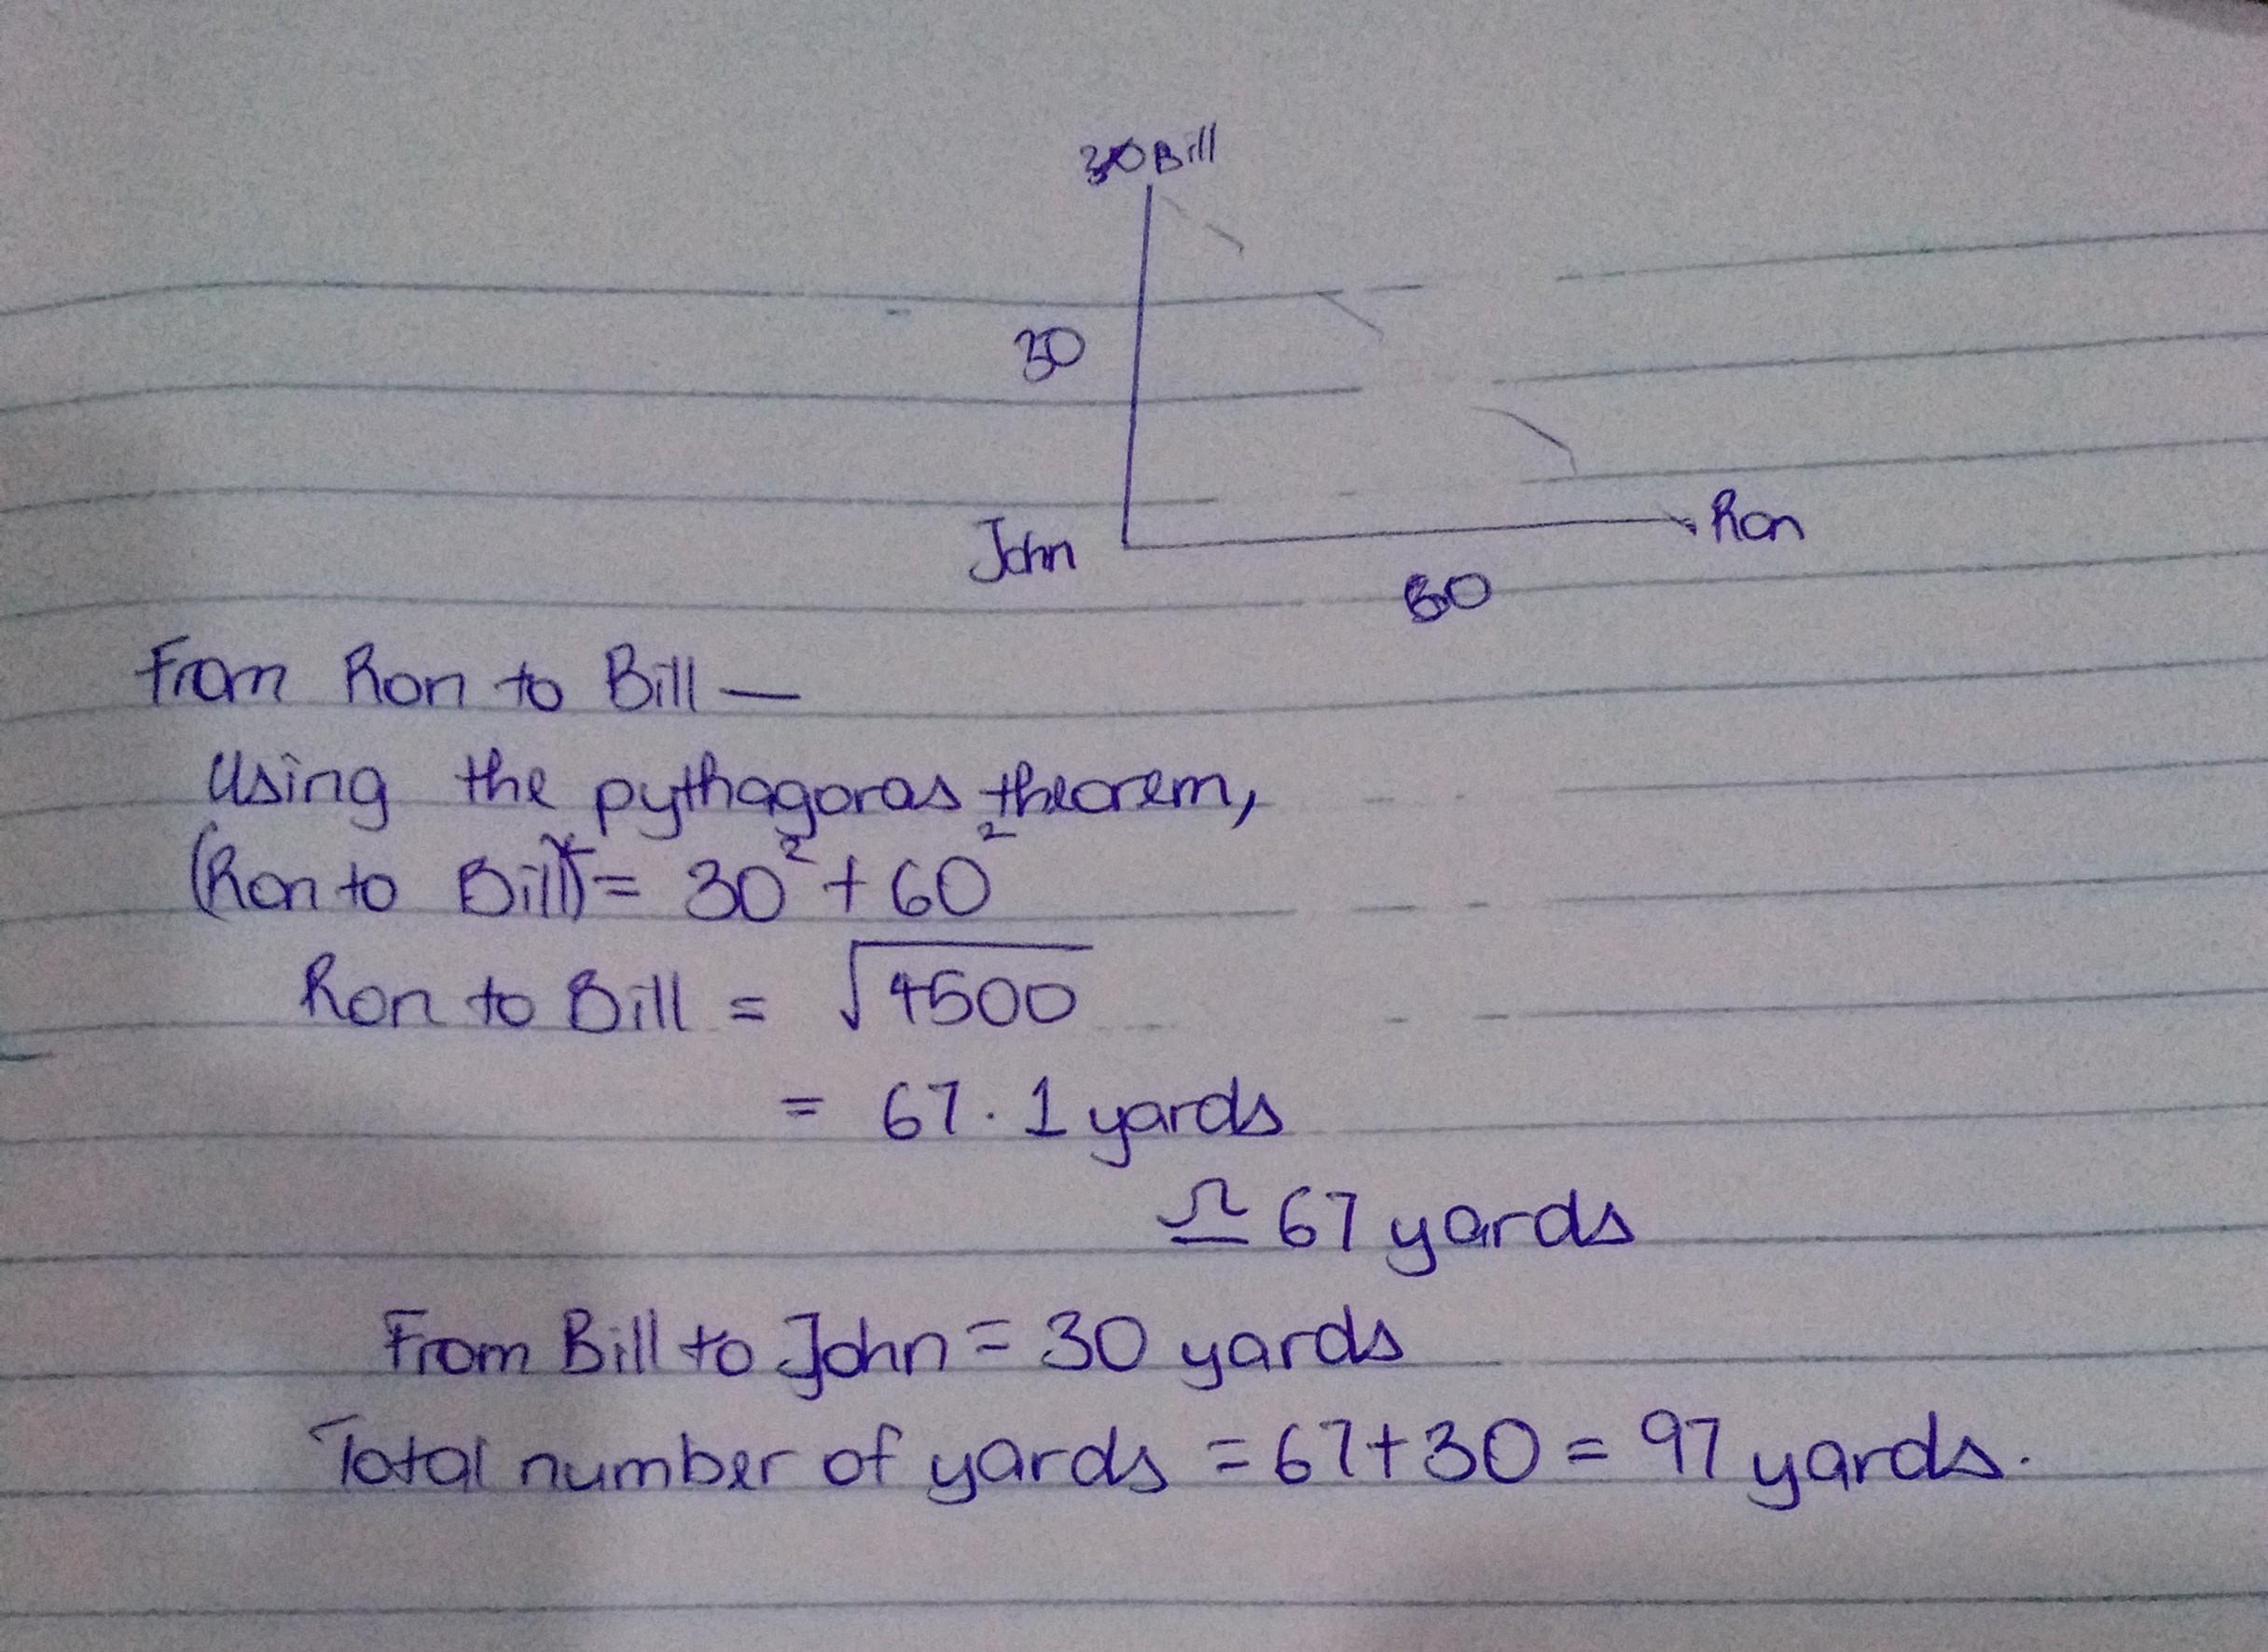 30 Bill
30
John
Ron
60
From Ron to Bill —
Using the pythagoras theorem,
(Ron to Bill)² = 30² + 60²
Ron to Bill = √4500
= 67.1 yards
≏ 67 yards
From Bill to John = 30 yards
Total number of yards = 67+30 = 97 yards.